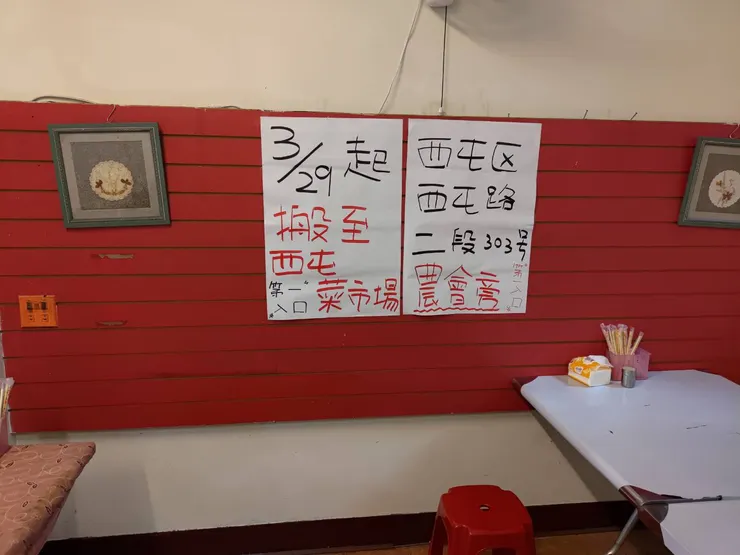 3/29 起
搬至
西屯
第一
入口
菜市場
西屯区
西屯路
二段303号
農會旁
第一
入口